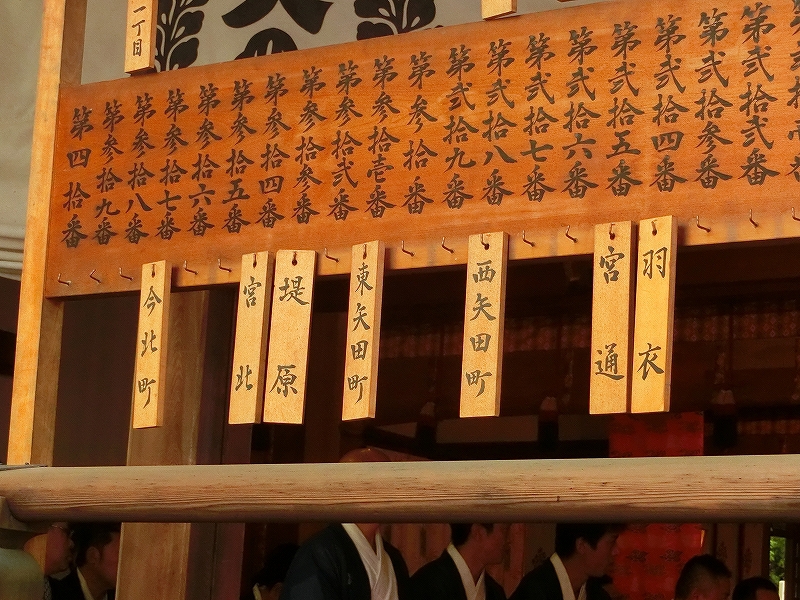 一丁目
第弐拾弐番
第弐拾参番
第弐拾四番
第弐拾五番
第弐拾六番
第弐拾七番
第弐拾八番
第弐拾九番
第参拾番
第参拾壱番
第参拾弐番
第参拾参番
第参拾四番
第参拾五番
第参拾六番
第参拾七番
第参拾八番
第参拾九番
第四拾番
羽衣
宮通
西矢田町
東矢田町
堤原
宮北
今北町